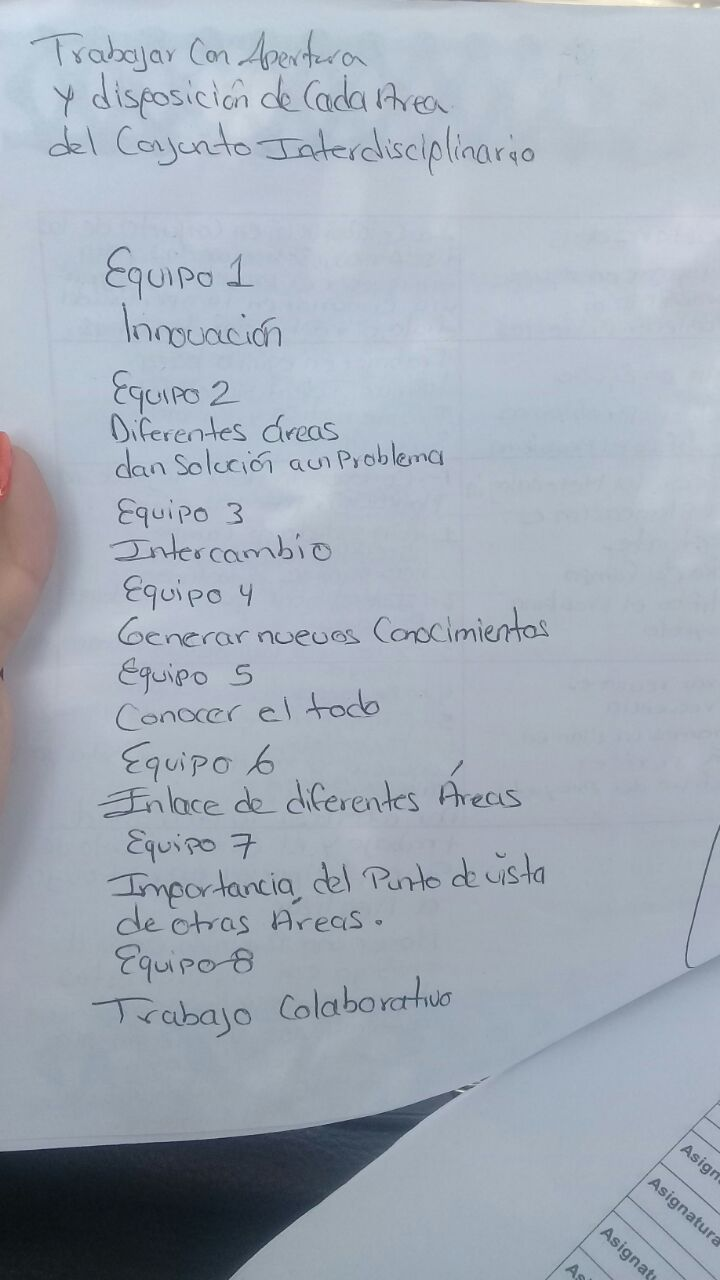 Trabajar Con Apertura
y disposición de Cada Area
del Conjunto Interdisciplinario
Equipo 1
Innovación
Equipo 2
Diferentes áreas
dan Solución a un Problema
Equipo 3
Intercambio
Equipo 4
Generar nuevos Conocimientos
Equipo 5
Conocer el todo
Equipo 6
Enlace de diferentes Áreas
Equipo 7
Importancia del Punto de vista
de otras Áreas.
Equipo 8
Trabajo Colaborativo
Asign
Asignatura
Asignat
As